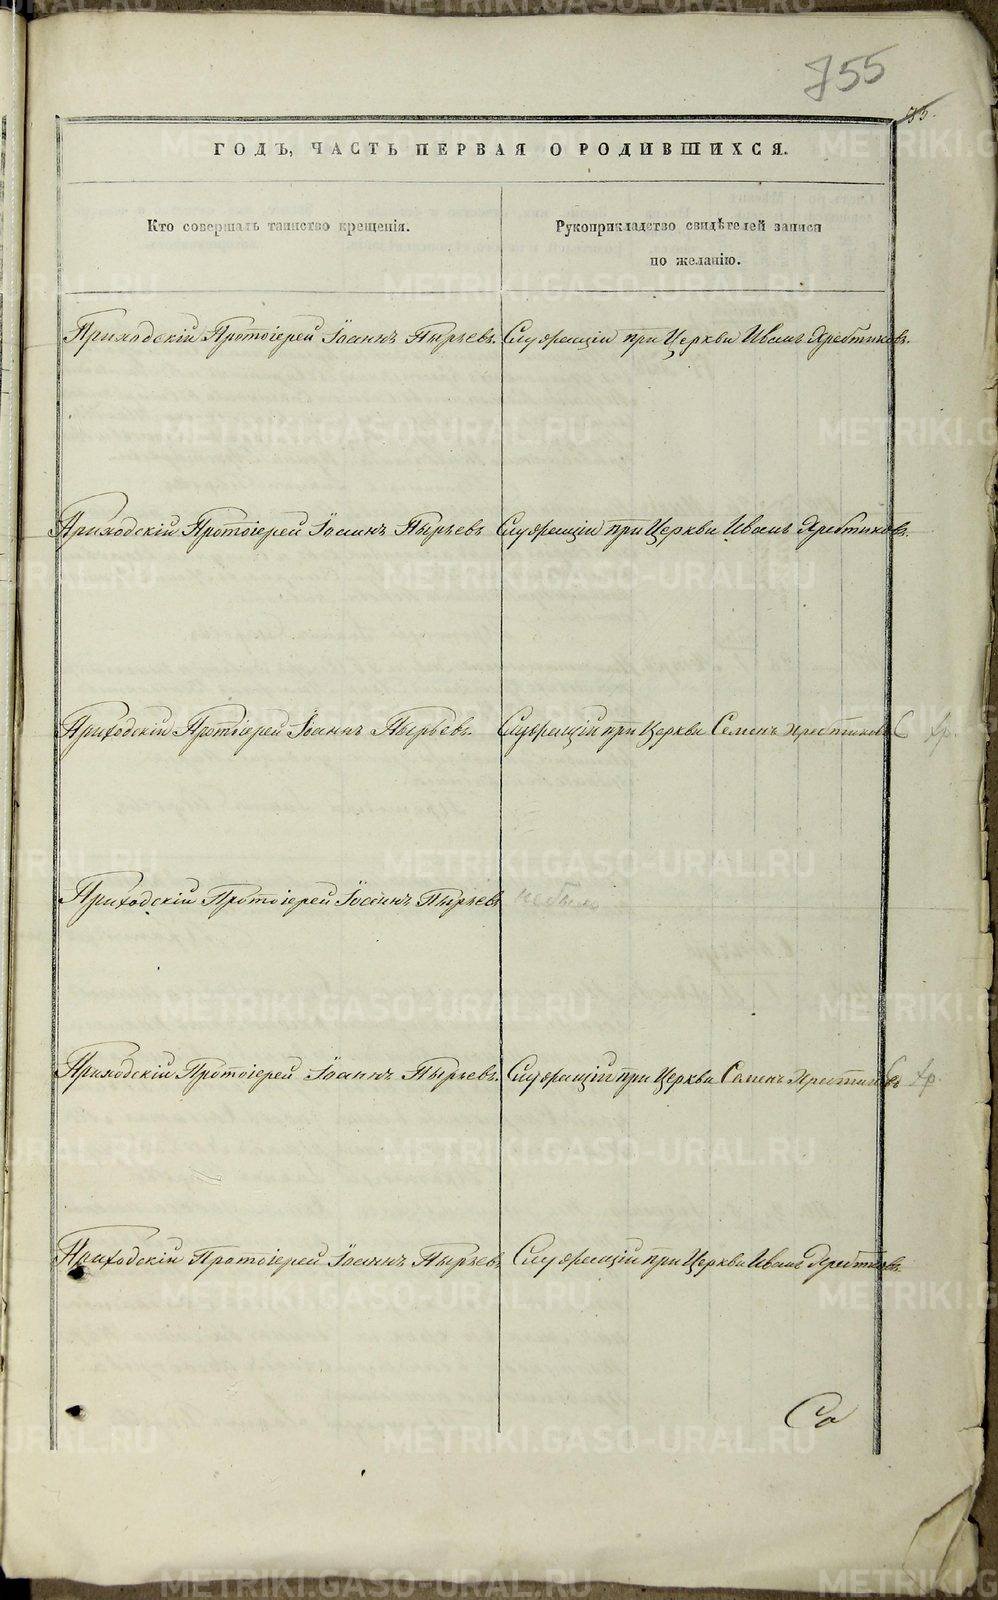 755
75.
ГОДЪ, ЧАСТЬ ПЕРВАЯ О РОДИВШИХСЯ.
Кто совершалъ таинство крещенія.
Рукоприкладство свидѣтелей записи
по желанію.
Приходскій Протоіерей Іоаннъ Пырьевъ. Служащій при Церкви Иванъ Хребтиковъ.
Приходскій Протоіерей Іоаннъ Пырьевъ Служащій при Церкви Иванъ Хребтиковъ.
Приходскій Протоіерей Іоаннъ Пырьевъ. Служащій при Церкви Семенъ Хребтиковъ
Приходскій Протоіерей Іоаннъ Пырьевъ не было
Приходскій Протоіерей Іоаннъ Пырьевъ. Служащій при Церкви Семенъ Хребтиковъ
Приходскій Протоіерей Іоаннъ Пырьевъ Служащій при Церкви Иванъ Хребтковъ.
Со
METRIKI.GASO-URAL.RU